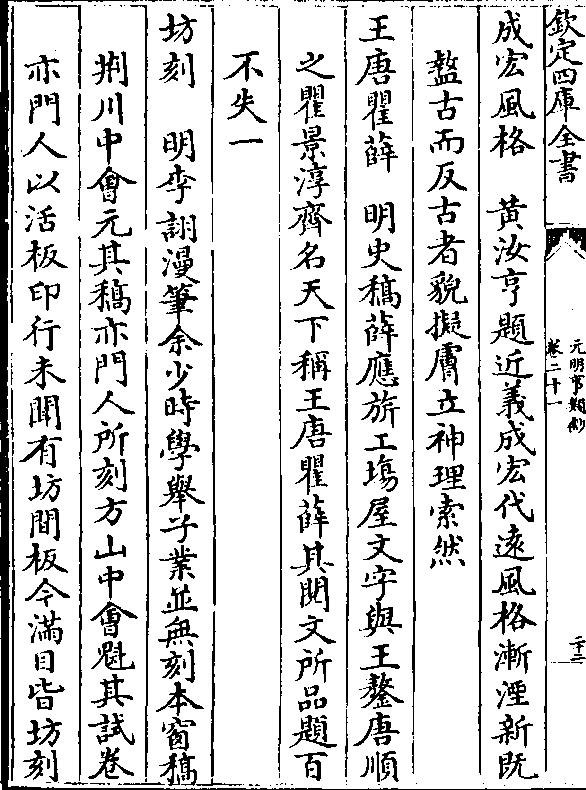 欽定四庫全書
元明事類鈔
卷二十一
二十二
成宏風格　黄汝亨題近義成宏代遠風格漸湮新既
盭古而反古者貌擬膚立神理索然
王唐瞿薛　明史稿薛應旂工塲屋文字與王鏊唐順
之瞿景淳齊名天下稱王唐瞿薛其閲文所品題百
不失一
坊刻　明李詡漫筆余少時學舉子業並無刻本窗稿
荆川中會元其稿亦門人所刻方山中會魁其試卷
亦門人以活板印行未聞有坊間板今滿目皆坊刻